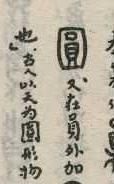 圓 又在員外加
也，古人以天为圆形物